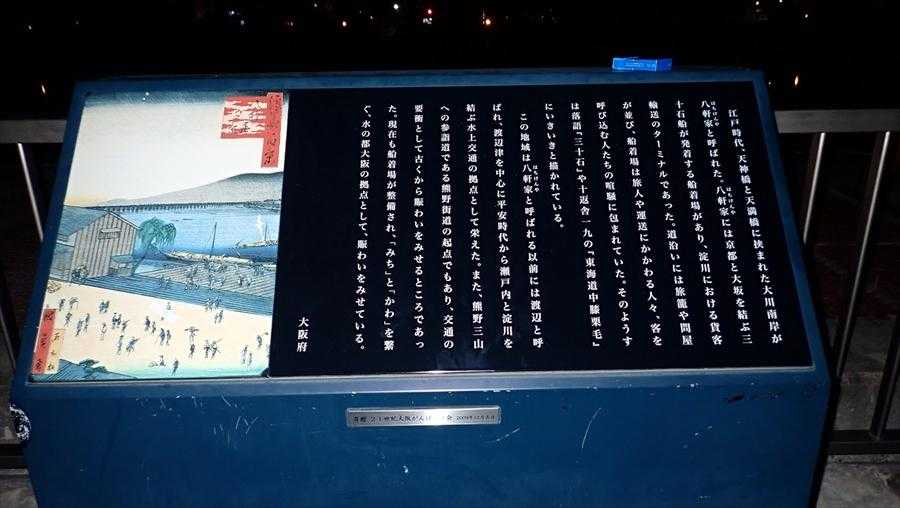 江戸時代、天神橋と天満橋に挟まれた大川南岸が
八軒家と呼ばれた。八軒家には京都と大坂を結ぶ三
十石船が発着する船着場があり、淀川における貨客
輸送のターミナルであった。道沿いには旅籠や問屋
が並び、船着場は旅人や運送にかかわる人々、客を
呼び込む人たちの喧騒に包まれていた。そのようす
は落語「三十石」や十返舎一九の『東海道中膝栗毛』
にいきいきと描かれている。
この地域は八軒家と呼ばれる以前には渡辺と呼
ばれ、渡辺津を中心に平安時代から瀬戸内と淀川を
結ぶ水上交通の拠点として栄えた。また、熊野三山
への参詣道である熊野街道の起点でもあり、交通の
要衝として古くから賑わいをみせるところであっ
た。現在も船着場が整備され、「みち」と「かわ」を繋
ぐ、水の都大阪の拠点として、賑わいをみせている。
大阪府
寄贈 21世紀大阪がんばろう会 2009年12月吉日